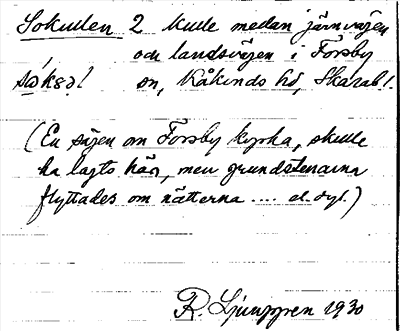 Sokullen 2 kulle mellan järnvägen
och landsvägen i Forsby
sn, Kåkinds hd, Skarab. l.
(En sägen om Forsby kyrka, skulle
ha lagts här, men grundstenarna
flyttades om nätterna .... el. dyl.)
R. Ljunggren 1930